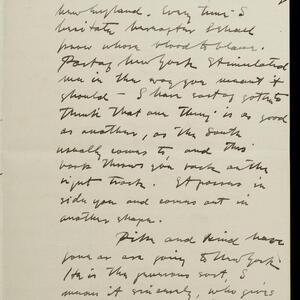 New England. Every time I
hesitate hereafter I shall
know whose blood to blame.
Part of New York stimulated
me in the way you meant it
should – I have sort of gotten to
think that one thing is as good
as another, as the South
usually comes to and this
book throws you back on the
right track. It passes in
side you and comes out in
another shape.
and kind have
gone as are going to New York
He is the generous sort, I
mean it sincerely, who gives